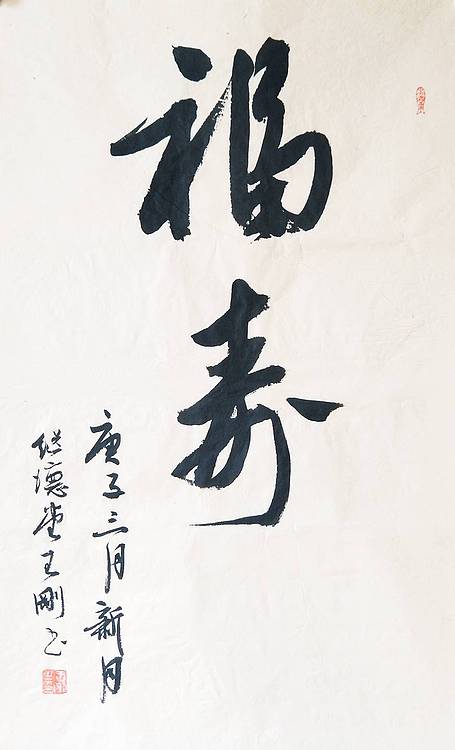 福寿
庚子三月新月
继德堂王刚书